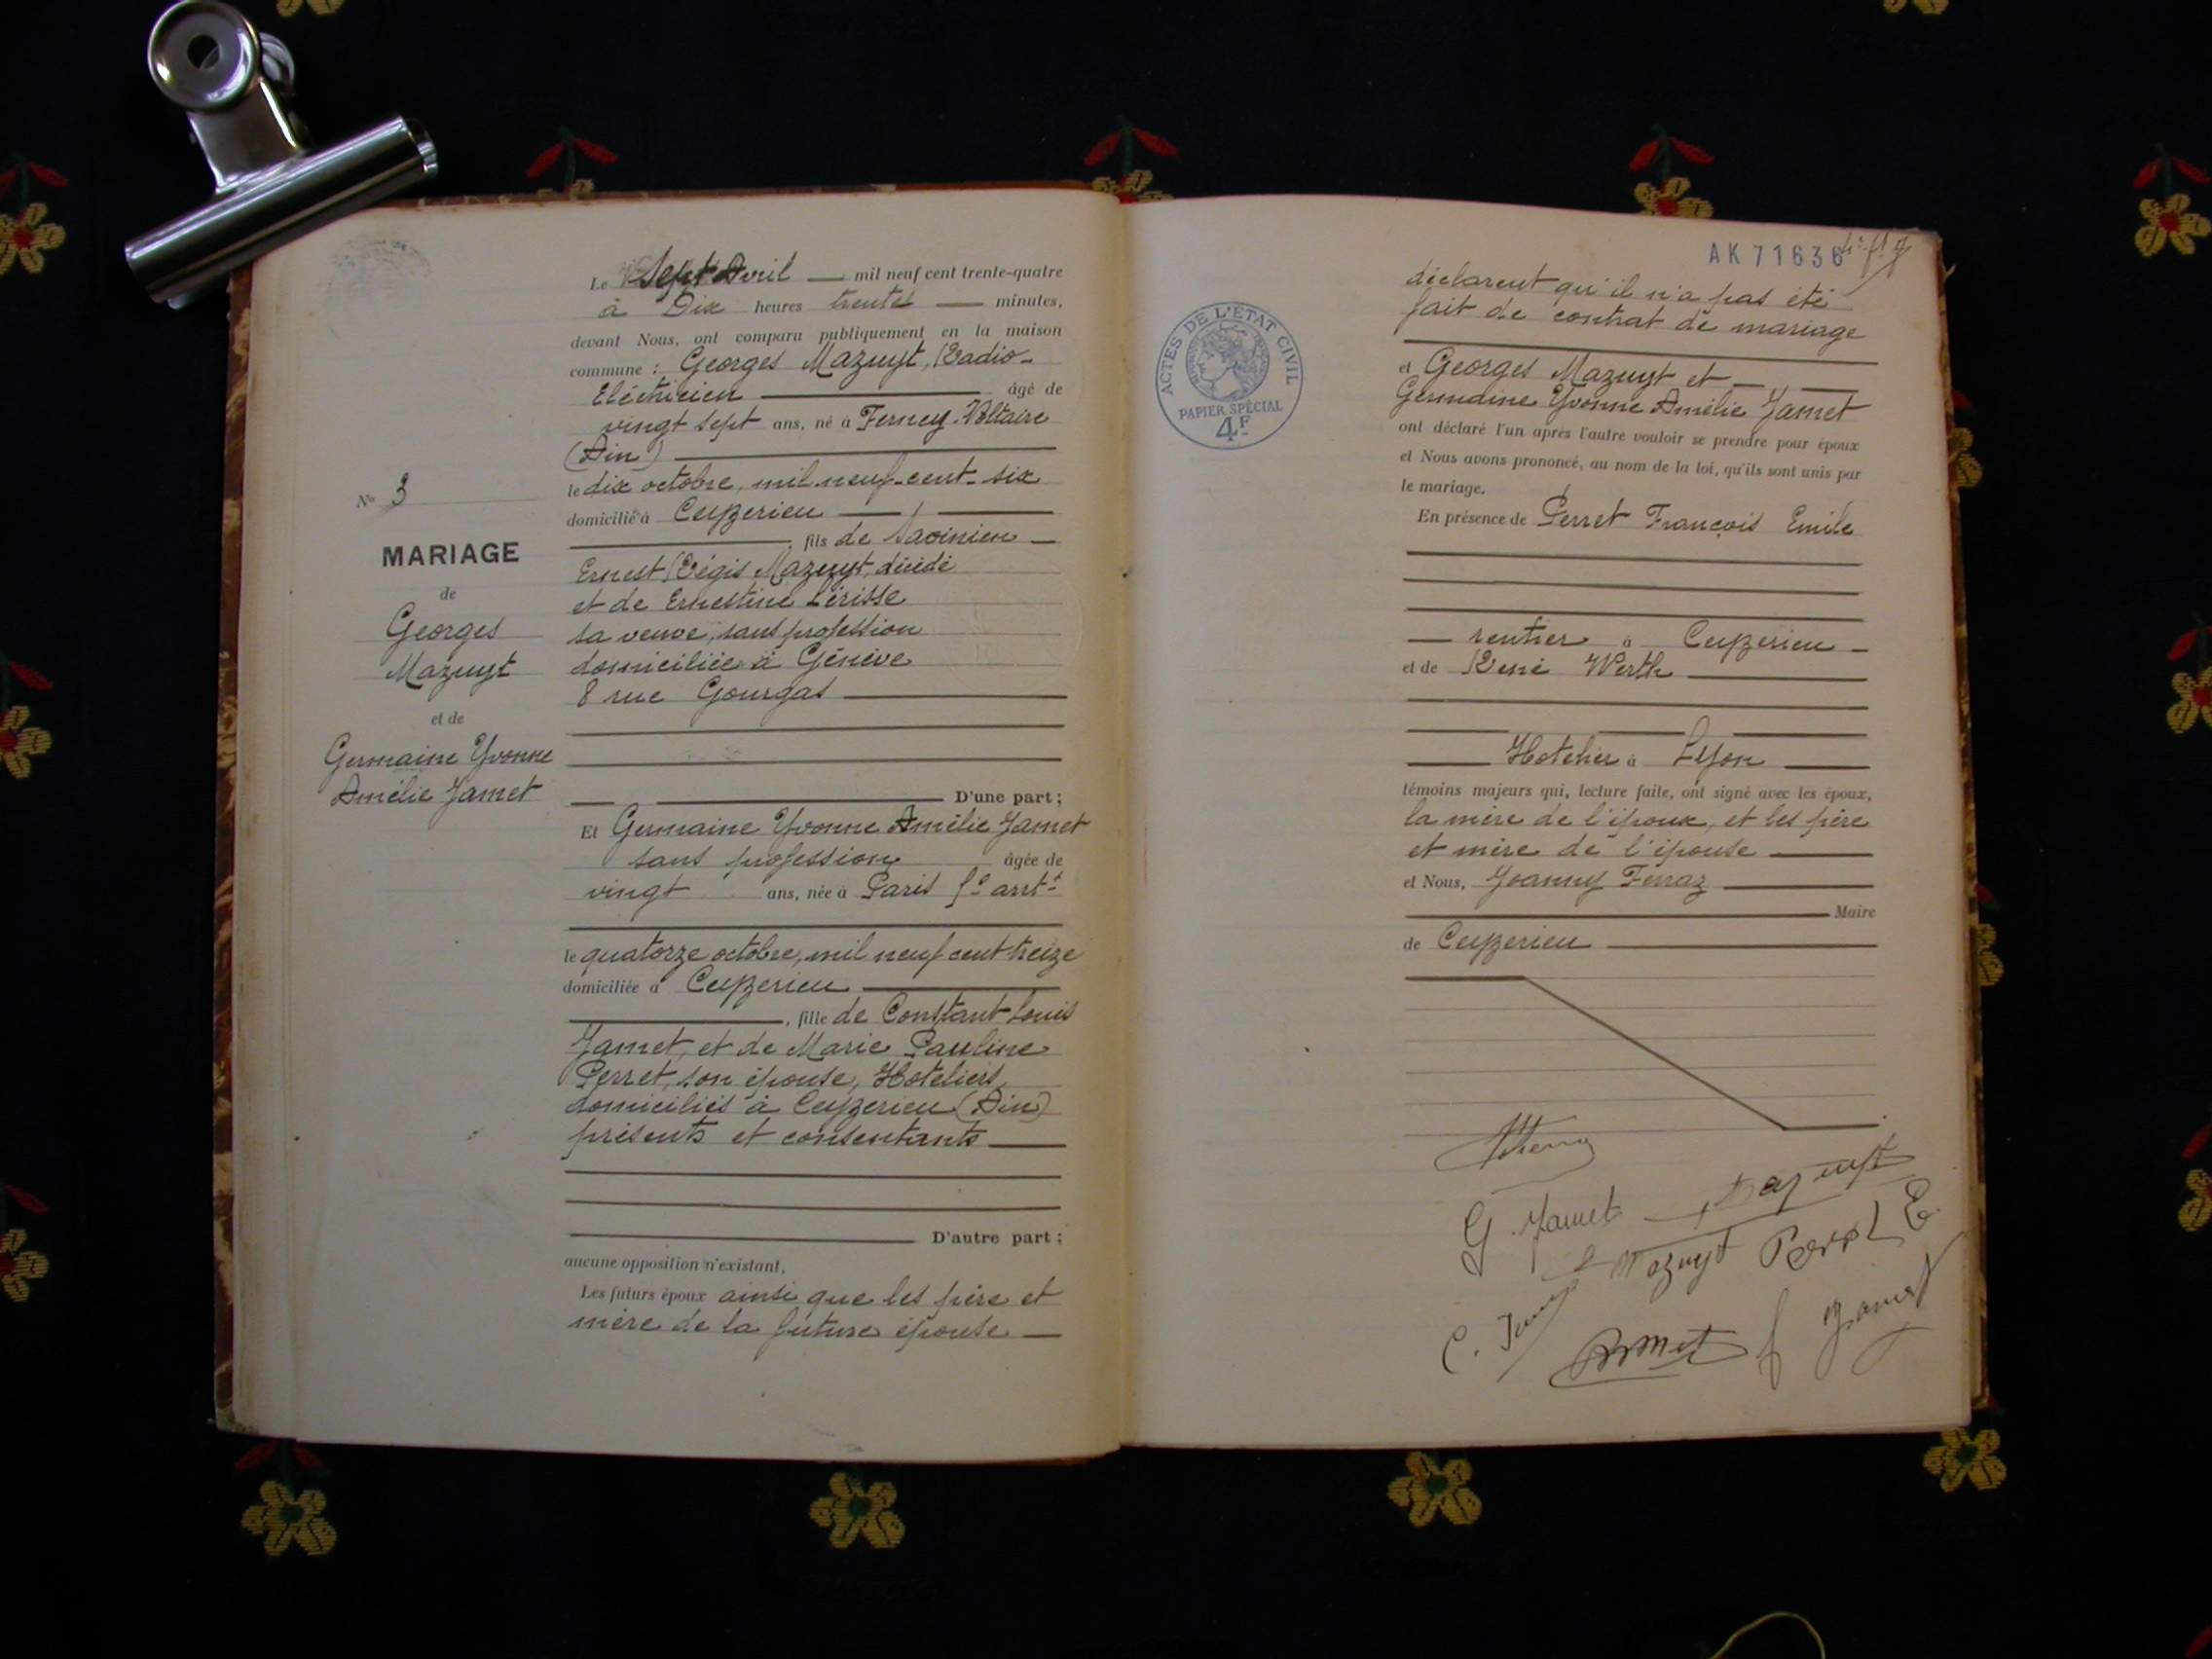 Le Sept Avril mil neuf cent trente-quatre
à Dix heures trente minutes,
devant Nous, ont comparu publiquement en la maison
commune : Georges Mazuyt, Radio-
Eléctricien âgé de
vingt sept ans, né à Ferney-Voltaire
(Ain)
le dix octobre, mil neuf cent six
domicilié à Ceyzerieu
, fils de Savinien
Ernest Régis Mazuyt, décédé
et de Ernestine Lérisse
sa veuve, sans profession
domiciliée à Génève
8 rue Gourgas
D'une part ;
Et Germaine Yvonne Amélie Jamet
sans profession âgée de
vingt ans, née à Paris arrt
le quatorze octobre, mil neuf cent treize
domiciliée à Ceyzerieu
, fille de Constant Louis
Jamet, et de Marie Pauline
Perret, son épouse, Hoteliers,
domiciliés à Ceyzerieu (Ain)
présents et consentants
D'autre part ;
aucune opposition n'existant.
Les futurs époux ainsi que les père et
mère de la future épouse
No 3
MARIAGE
de
Georges
Mazuyt
et de
Germaine Yvonne
Amélie Jamet
AK 71636
ACTES DE L'ÉTAT CIVIL
PAPIER SPÉCIAL
4F
déclarent qu'il n'a pas été
fait de contrat de mariage
et Georges Mazuyt et
Germaine Yvonne Amélie Jamet
ont déclaré l'un après l'autre vouloir se prendre pour époux
et Nous avons prononcé, au nom de la loi, qu'ils sont unis par
le mariage.
En présence de Perret François Emile
rentier à Ceyzerieu
et de René Werth
Hotelier à Lyon
témoins majeurs qui, lecture faite, ont signé avec les époux,
la mère de l'époux, et les père
et mère de l'épouse
et Nous, Joanny Ferraz
Maire
de Ceyzerieu
G. Jamet Mazuyt
Mazuyt Perret E.